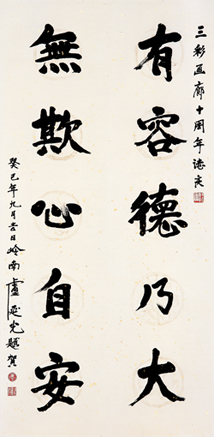 三彩画廊十周年志庆
有容德乃大
無欺心自安
癸巳年九月吉日岭南盧延光题贺